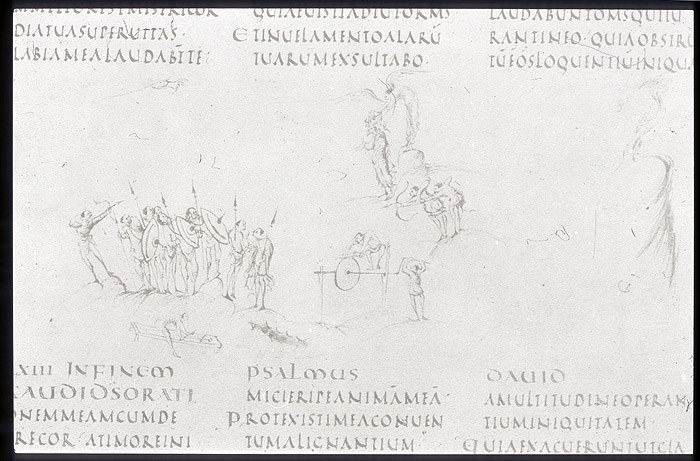 DIATUASUPERUITAS·
LABIAMEALAUDABT̄TE:
QUIAFUISTIADIUTORMS
ETINUELAMENTOALARŪ
TUARUMEXSULTABO·
LAUDABUNTOMSQUIIU
RANTINEO·QUIAOBSTRU
TŪEOSLOQUENTIUINIQUA
XIII INFINEM PSALMUS DAUID
XAUDIDSORATI
ONEMMEAMCUMDE
RECOR ATIMOREINI
MICIERIPEANIMĀMEĀ·
PROTEXISTIMEACONUEN
TUMALIGNANTIUM
AMULTITUDINEOPERAN
TIUMINIQUITATEM
QUIAEXACUERUNTUTGLA